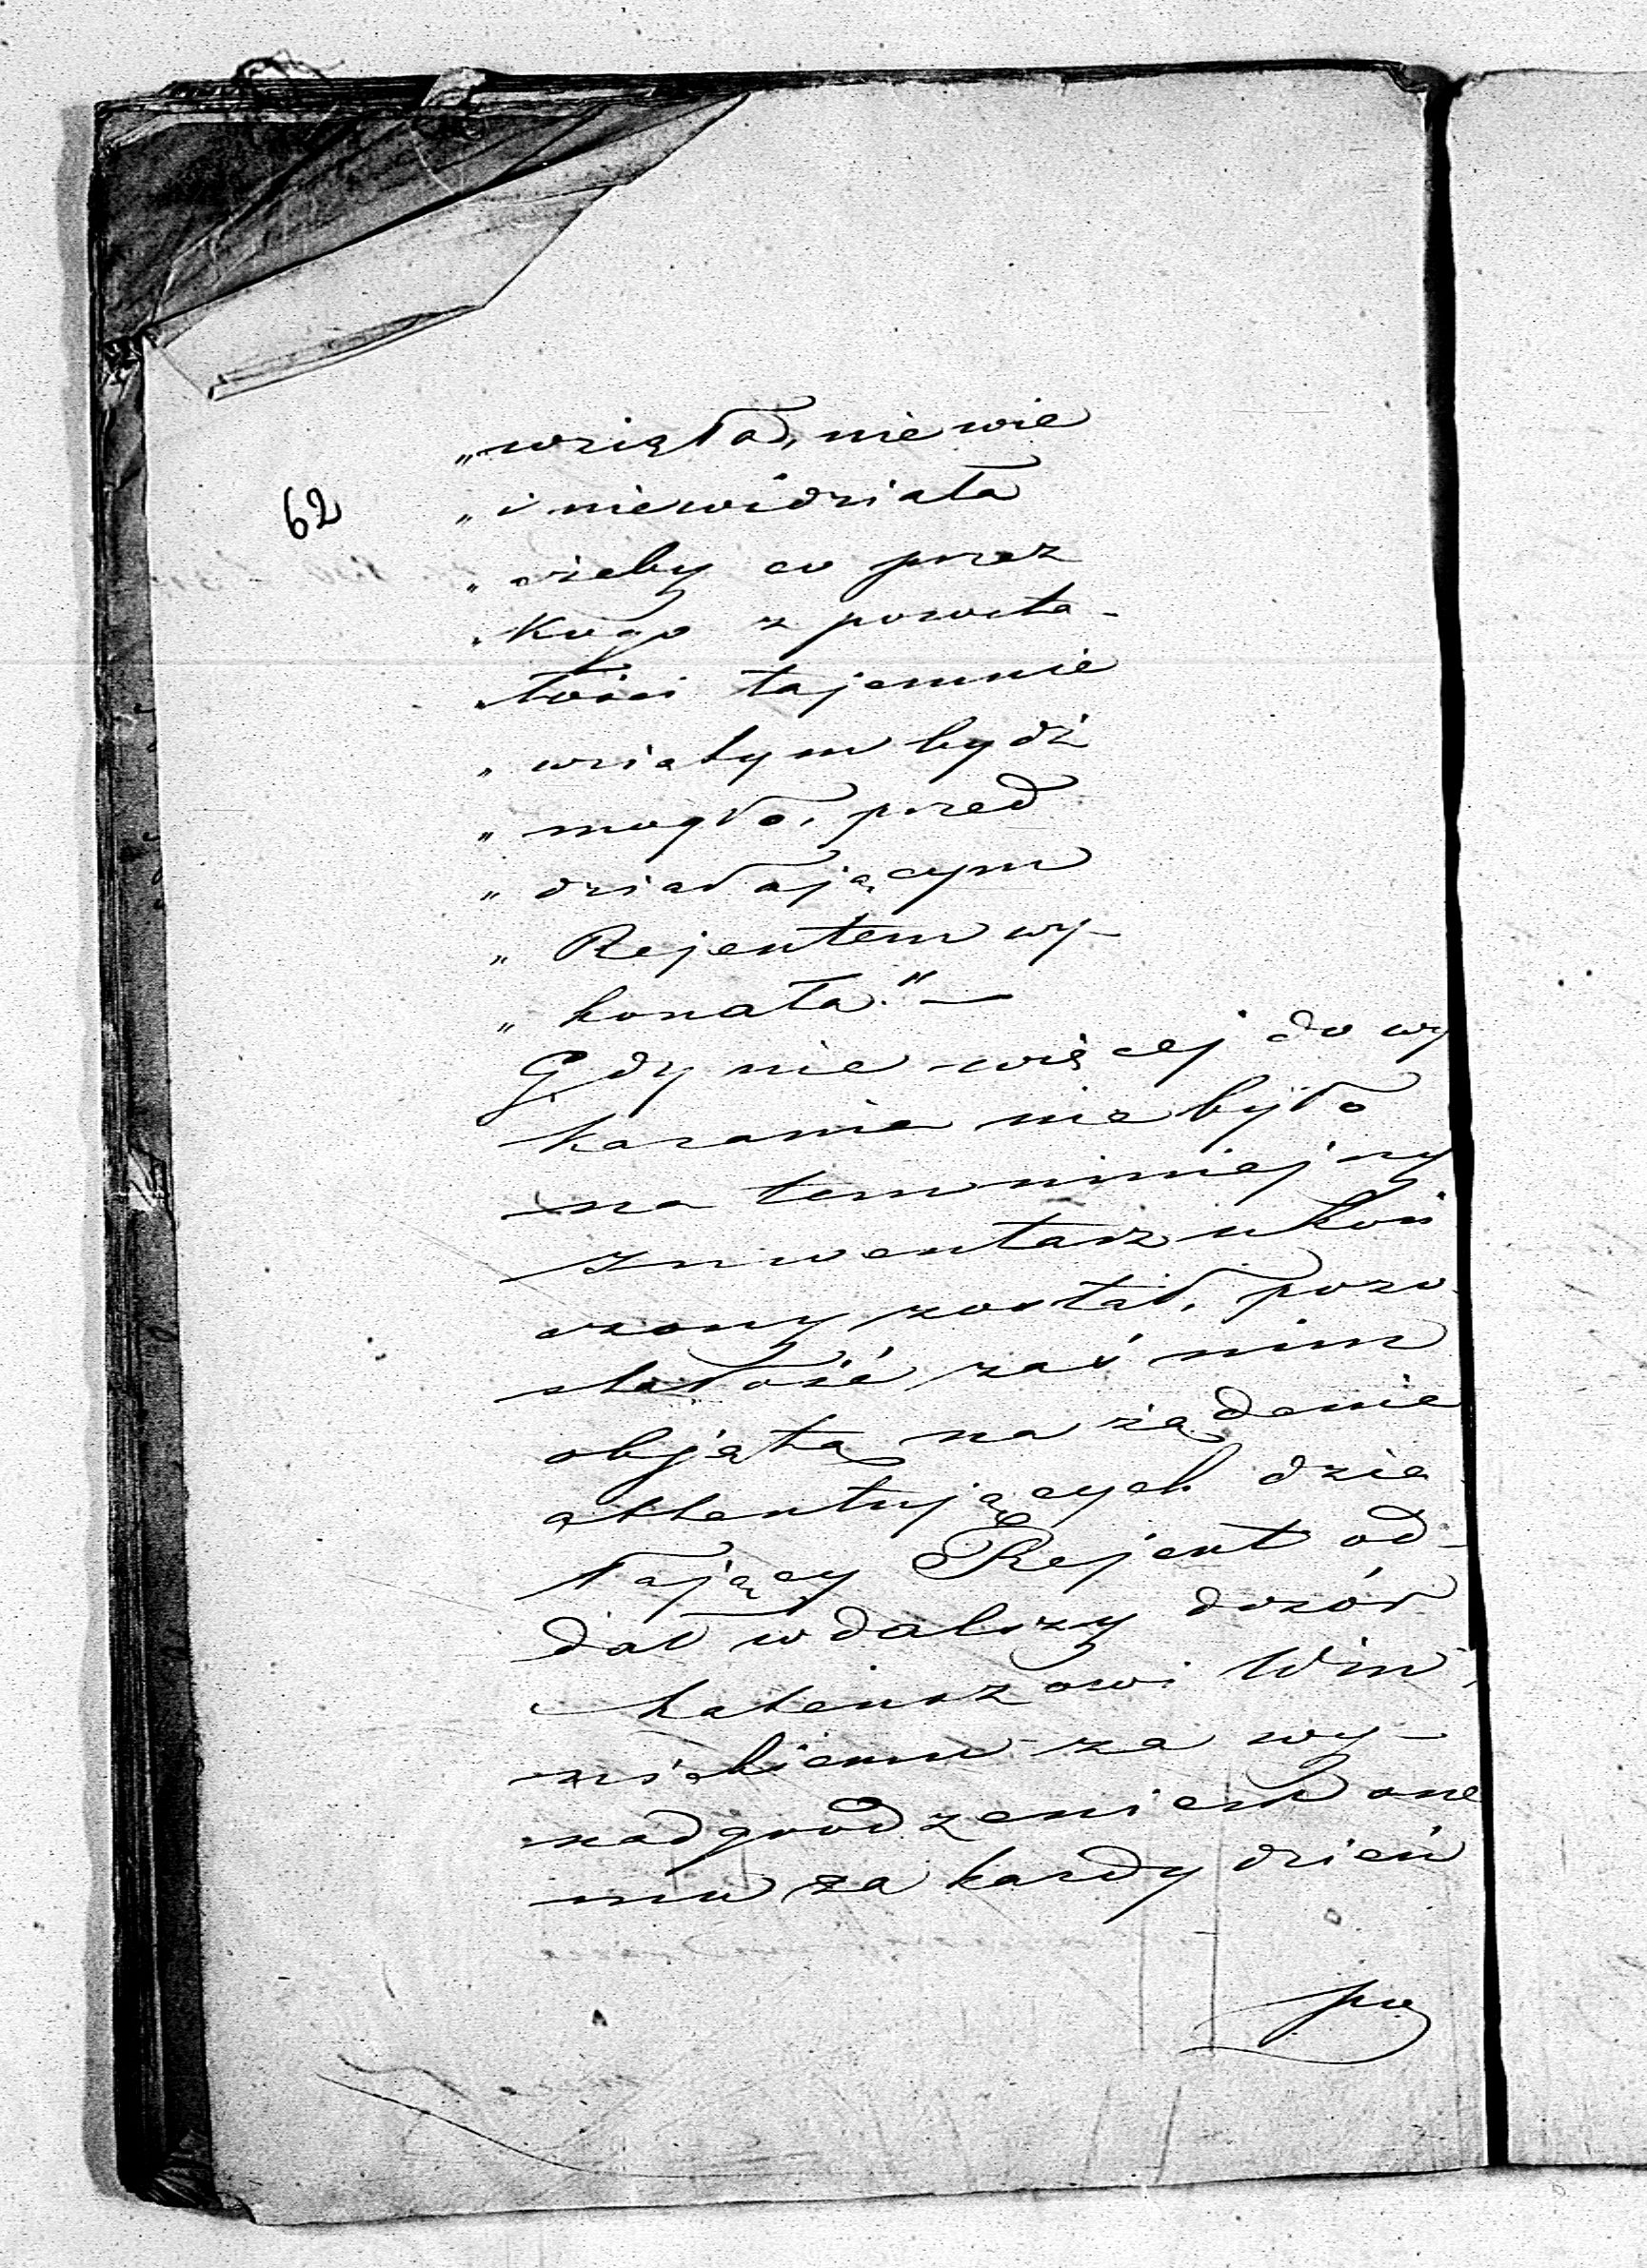 62
„wzięła, nie wie
„i niewidziała
„żeby co przez
„Kogo z pozosta-
„łości tajemnie
„wziętym bydź
„mogło, przed
„działającym
„Rejentem wy-
„konała." —
Gdy nic więcej do wy
kazania nie było
na tem niniejszy
Inwentarz ukoń
czony został, pozo
stałość zaś nim
objętą na żądanie
attentujących dzia
łający Rejent od-
dał w dalszy dozór
Mateuszowi Win
nickiemu za wy-
nadgrodzeniem one
mu za każdy dzień
po